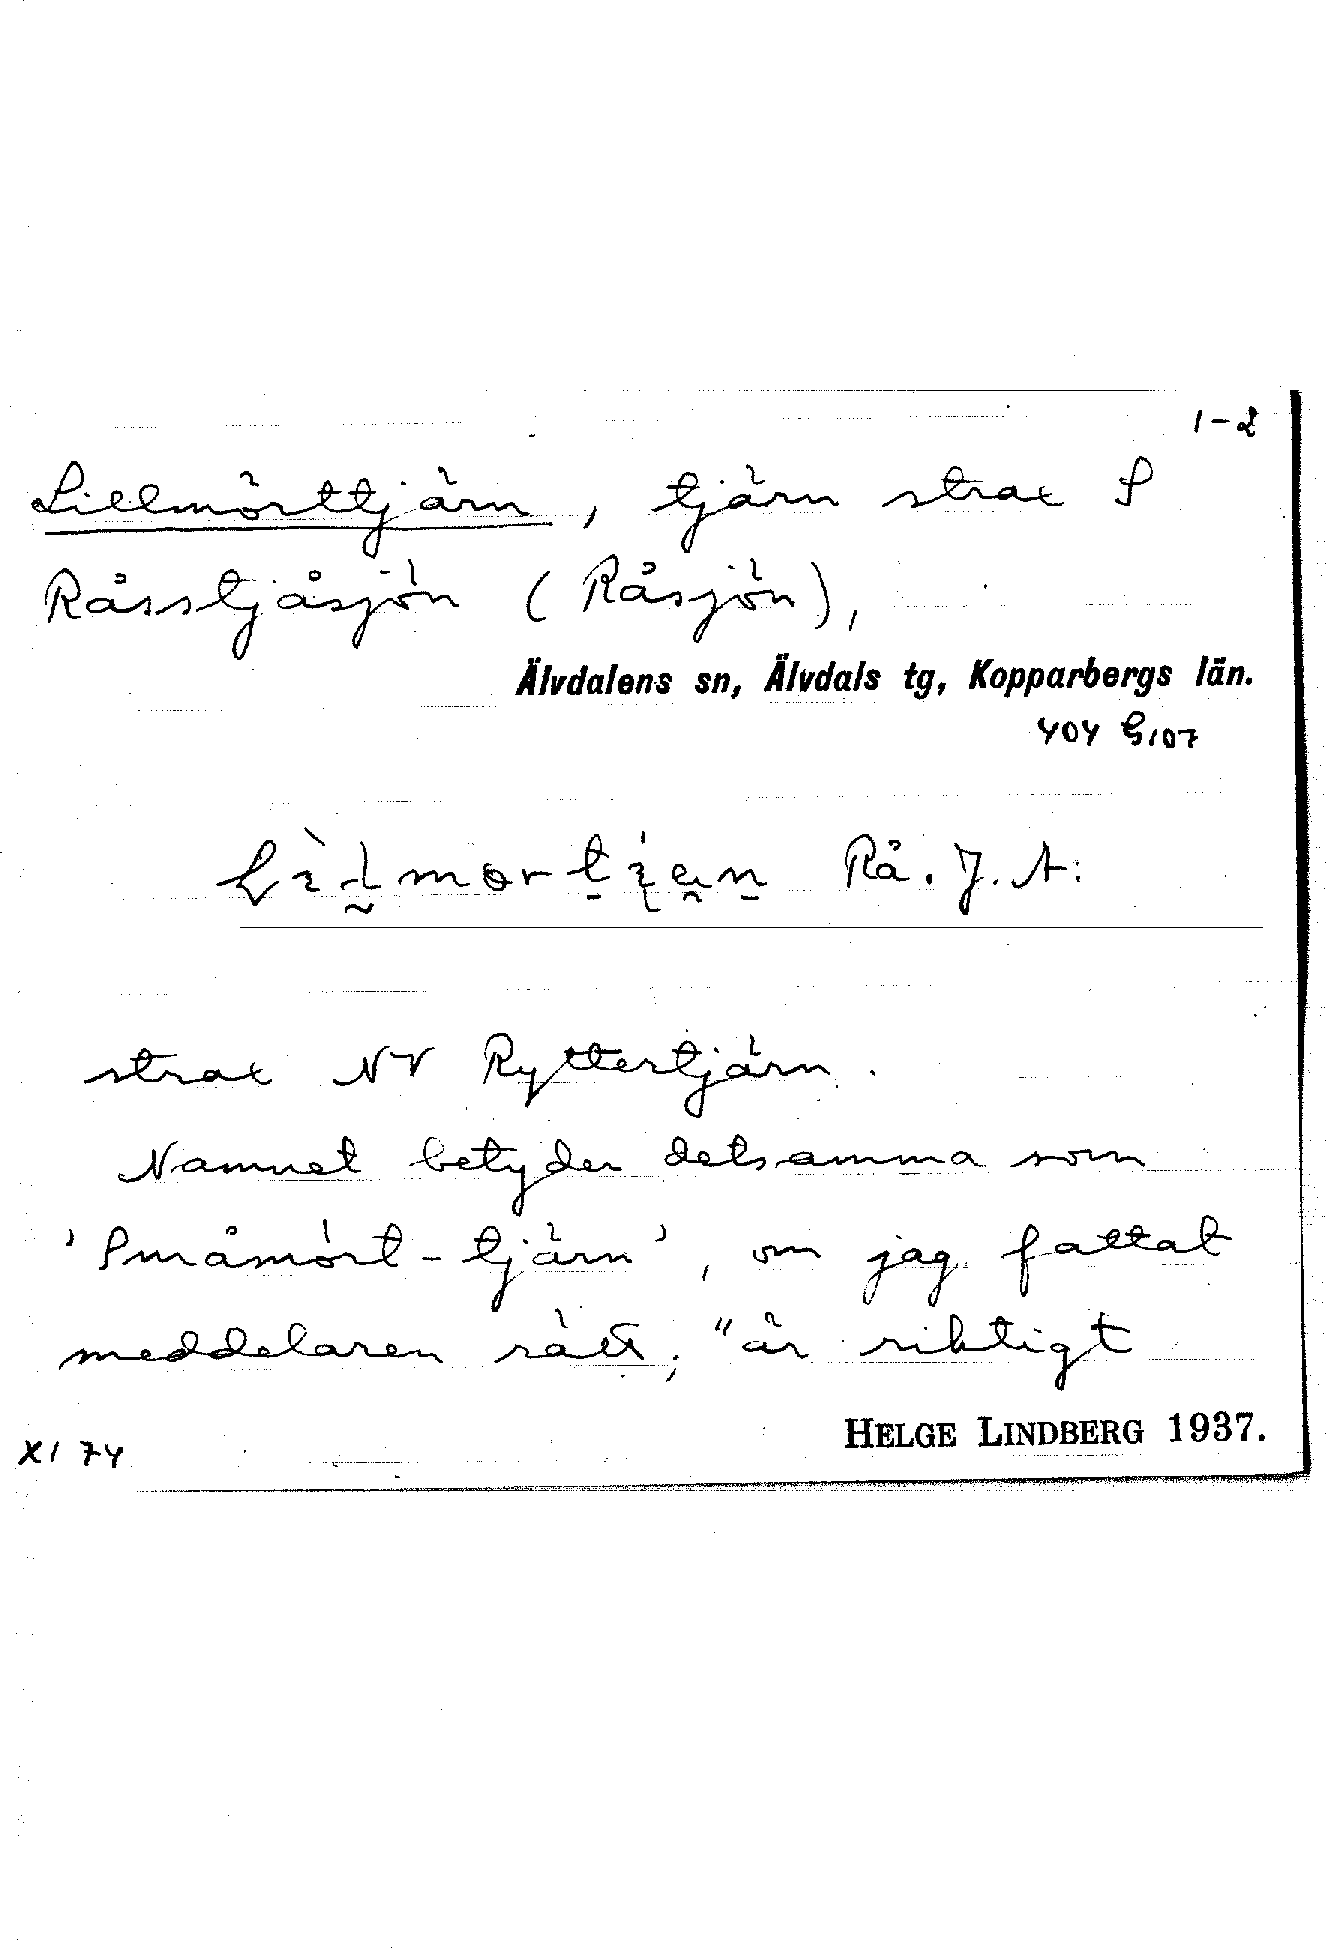 1-2
Lillmörttjärn, tjärn strax S
Råsstjåsjön (Råsjön),
Älvdalens sn, Älvdals tg, Kopparbergs län.
404 G107
Rå. J. A:
strax NV Ryttertjärn.
Namnet betyder detsamma som
'Småmört-tjärn', om jag fattat
meddelaren rätt; "är riktigt
HELGE LINDBERG 1937.
XI 74